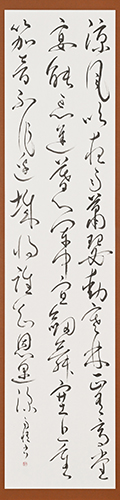 涼風吹夜雨蕭瑟動寒林正有高堂
宴能忘遲暮心軍中宜劍舞塞上重
笳音不作邊城將誰知恩遇深